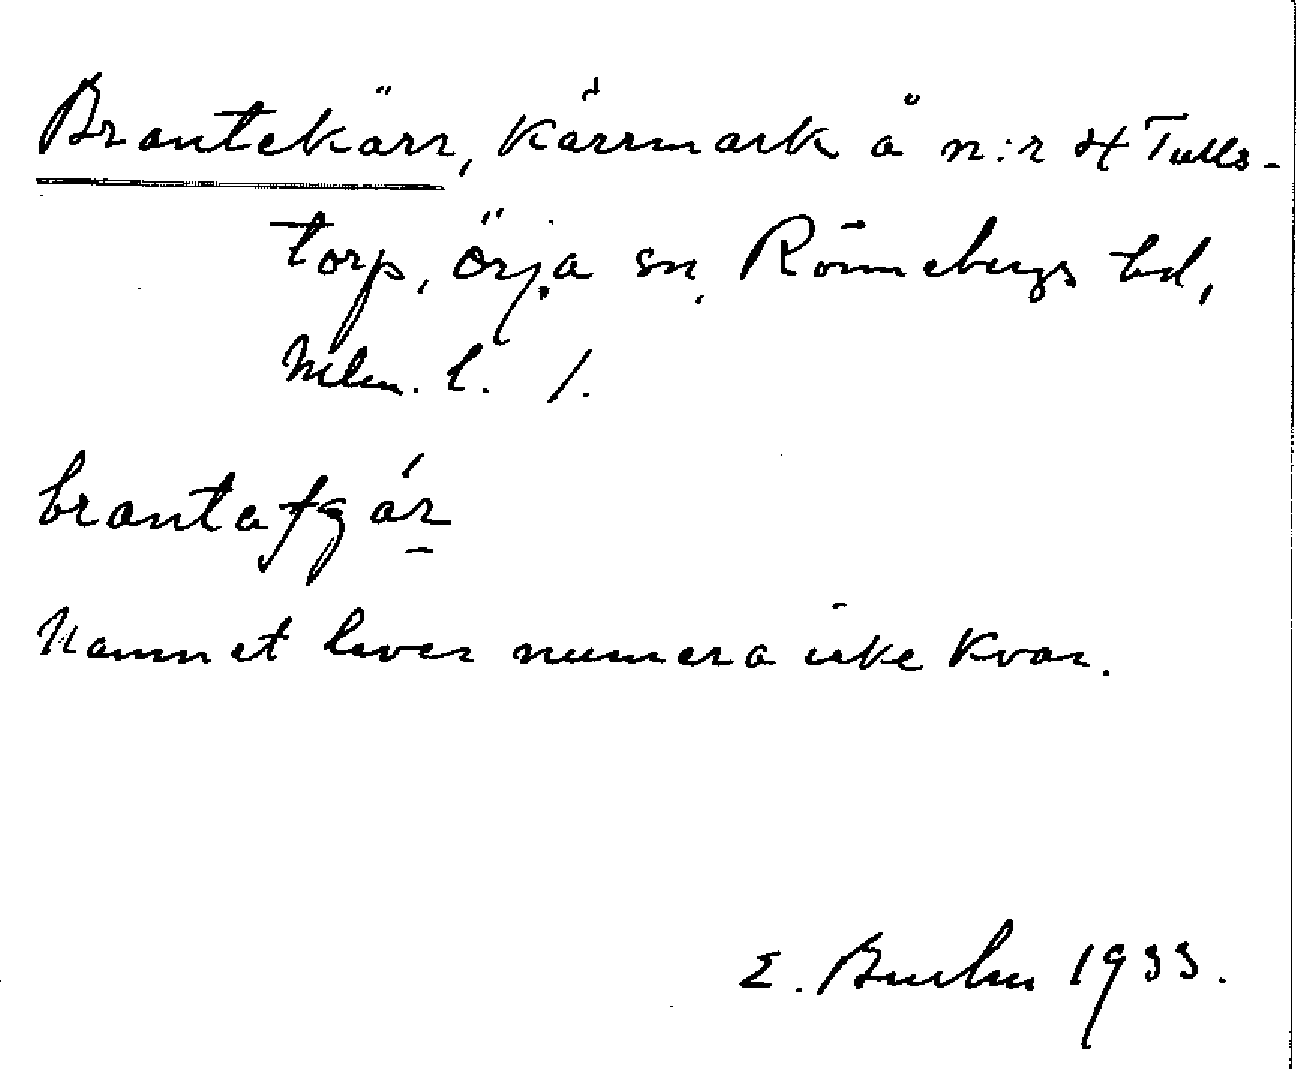 Brantekärr, Kärrmark å n:r 4 Tulls-
torp, Örja sn, Rönnebergs hd,
Mlm. l. /.
brantafgár
Namnet lever numera icke kvar.
E. 1933.